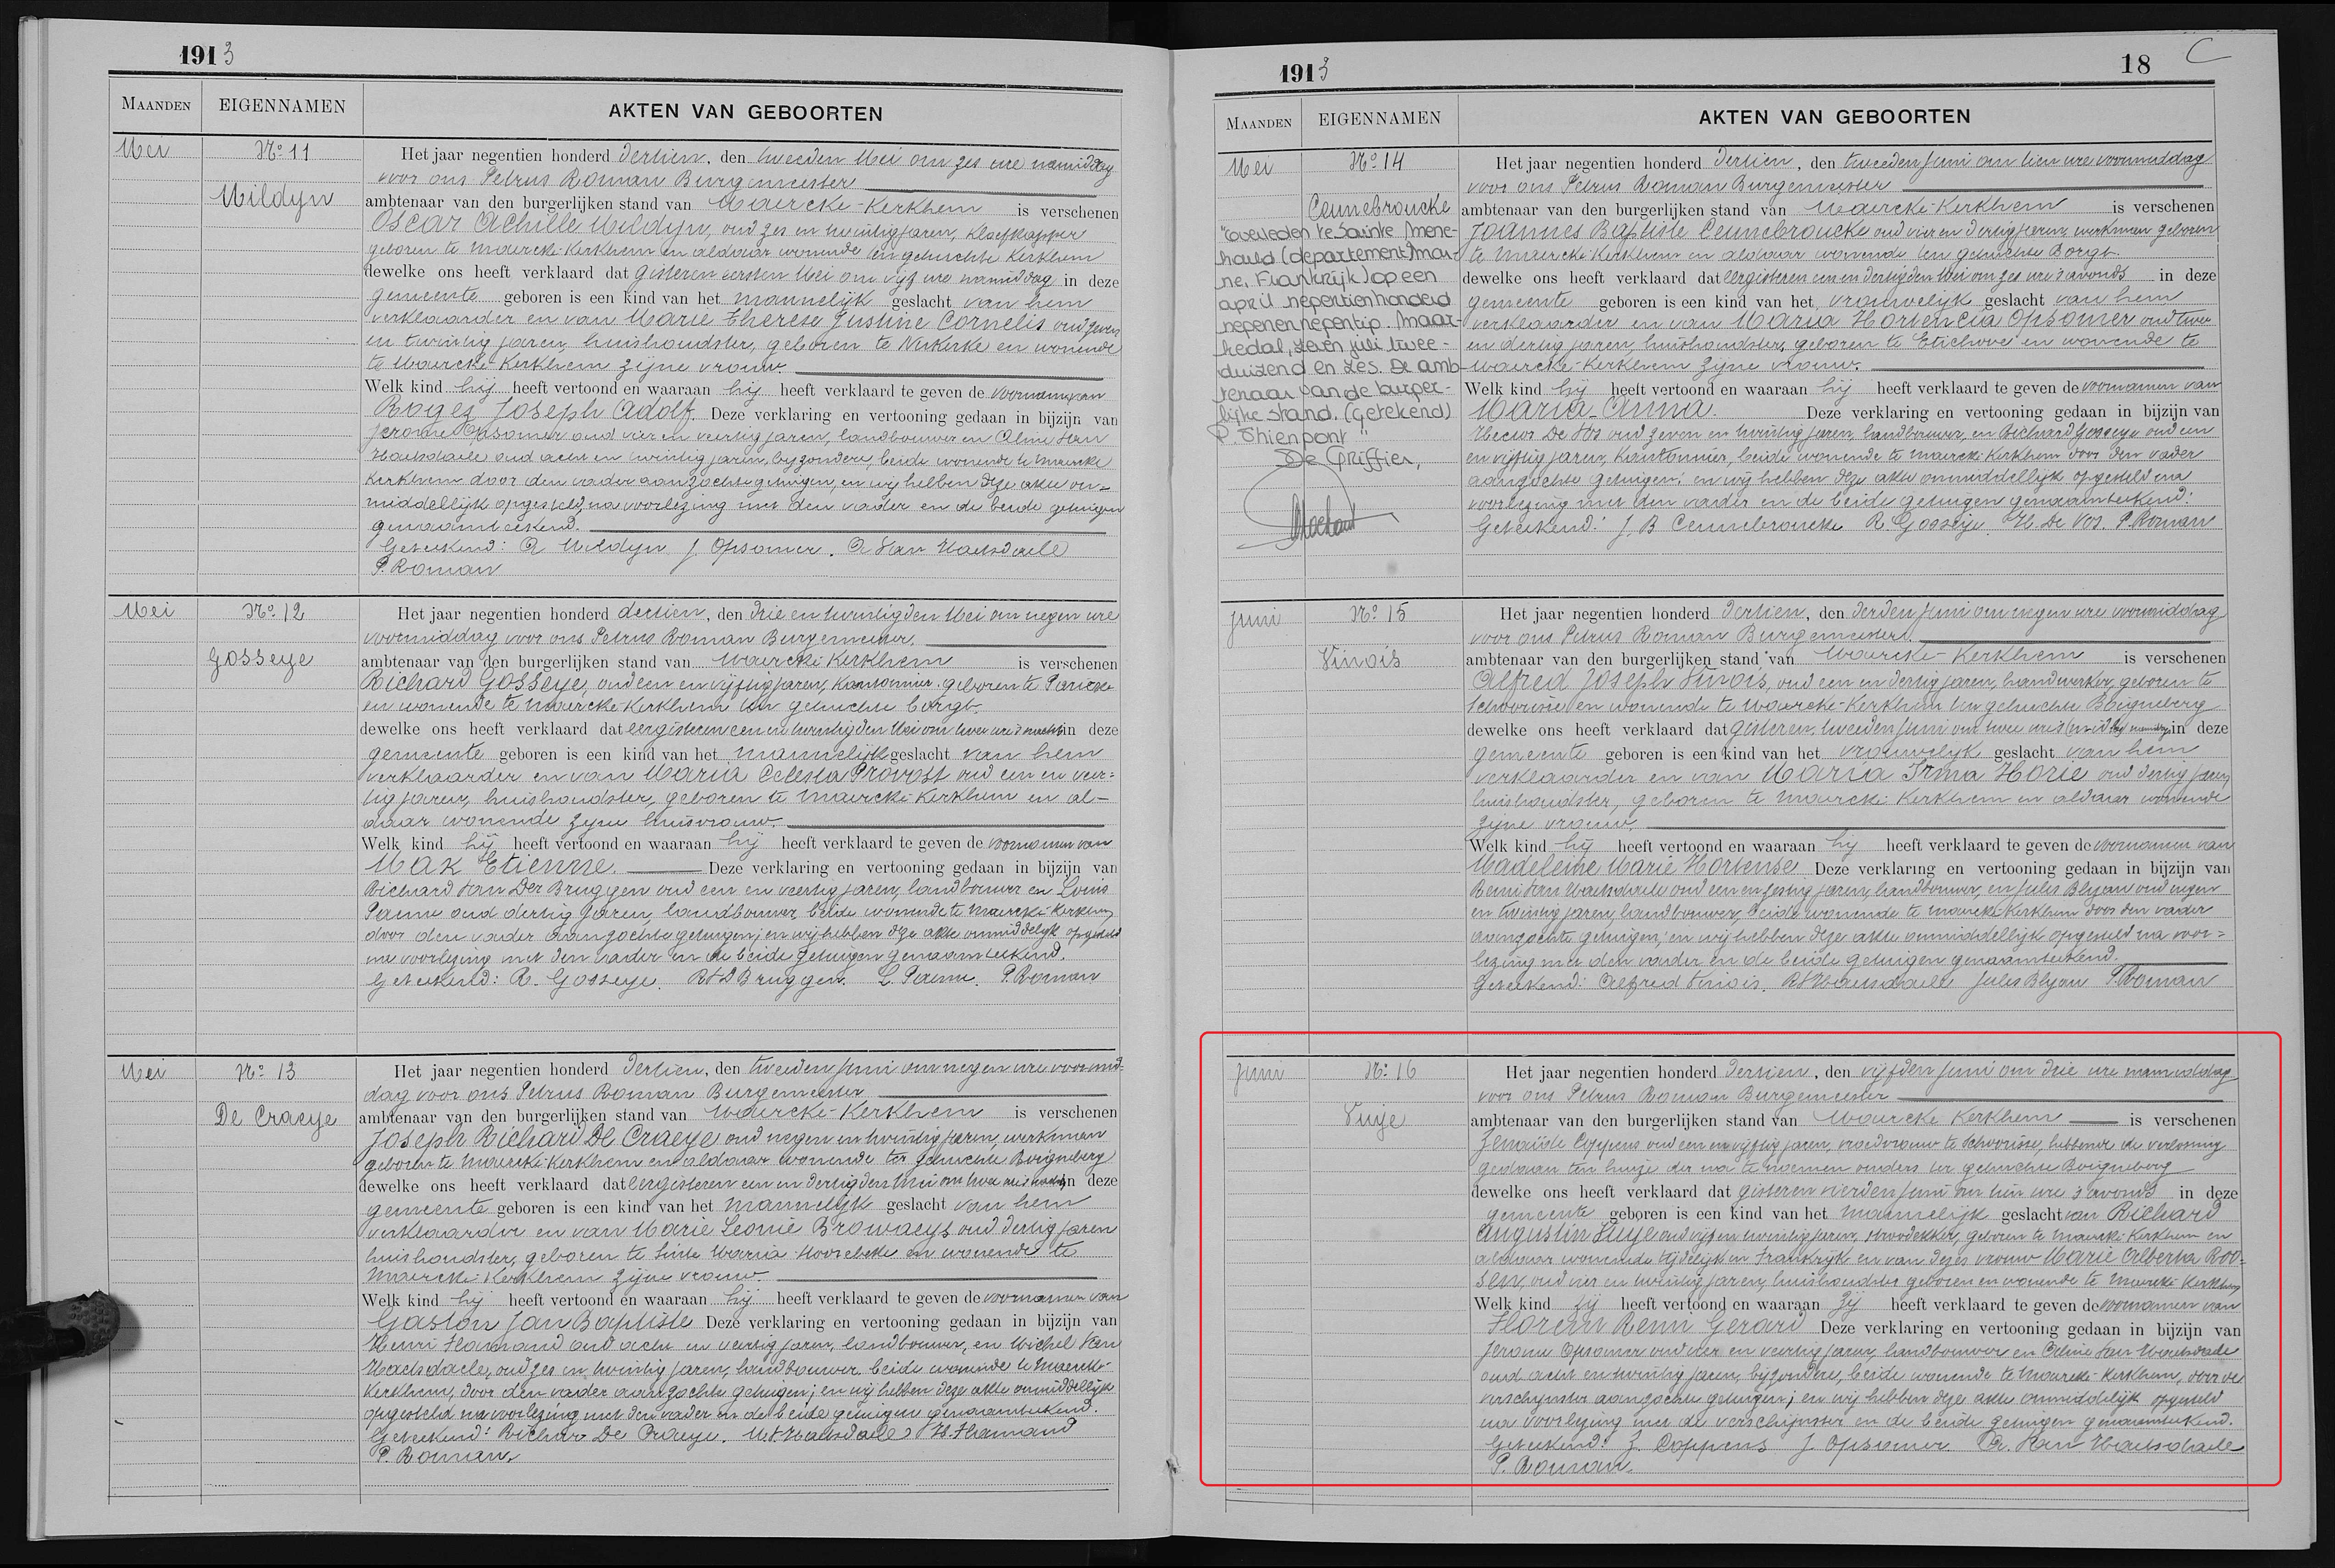 1913
MAANDEN EIGENNAMEN AKTEN VAN GEBOORTEN
Mei
No 11
Mildyn
Het jaar negentien honderd dertien, den tweeden Mei om zes ure namiddag
voor ons Petrus Roman Burgemeester
ambtenaar van den burgerlijken stand van Maercke-Kerkhem is verschenen
Oscar Achille Mildyn, oud zes en twintig jaren, kloefkapper
geboren te Maercke-Kerkhem en aldaar wonende ten gehuchte Kerkhem
dewelke ons heeft verklaard dat gisteren eersten Mei om vijf ure namiddag in deze
gemeente geboren is een kind van het mannelijk geslacht van hem
verklaarder en van Marie Therese Justine Cornelis oud zeven
en twintig jaren, huishoudster, geboren te Nukerke en wonende
te Maercke-Kerkhem zijne vrouw.
Welk kind hij heeft vertoond en waaraan hij heeft verklaard te geven de voornamen van
Roger Joseph Adolf. Deze verklaring en vertooning gedaan in bijzijn van
Jerome Opsomer oud vier en veertig jaren, landbouwer en Clme Van
Haetsdaele oud acht en twintig jaren, byzondere, beide wonende te Maercke
Kerkhem door den vader aanzochte getuigen, en wij hebben deze akte on=
middellijk opgesteld, na voorlezing met den vader en de beide getuigen
genaamteekend.
Geteekend: O Mildyn J Opsomer. A Van Haetsdaele
P. Roman
Mei
No 12
Gosseye
Het jaar negentien honderd dertien, den drie en twintigden Mei om negen ure
voormiddag voor ons Petrus Roman Burgemeester.
ambtenaar van den burgerlijken stand van Maercke Kerkhem is verschenen
Richard Gosseye, oud een en vijftig jaren, Kantonnier, geboren te Paricke
en wonende te Maercke-Kerkhem ten gehuchte Borgt.
dewelke ons heeft verklaard dat eergisteren een en twintigden Mei om twee ure 's nachts in deze
gemeente geboren is een kind van het mannelijk geslacht van hem
verklaarder en van Maria Celesta Provost oud een en veer=
tig jaren, huishoudster, geboren te Maercke-Kerkhem en al-
daar wonende zijne huisvrouw.
Welk kind hij heeft vertoond en waaraan hij heeft verklaard te geven de voornamen van
Max Etienne. Deze verklaring en vertooning gedaan in bijzijn van
Richard Van Der Bruggen oud een en veertig jaren, landbouwer en Louis
Paeme oud dertig jaren, landbouwer, beide wonende te Maercke-Kerkhem
door den vader aangochte getuigen; en wij hebben deze akte onmiddelijk opgesteld
na voorlezing met den vader en de beide getuigen genaamteekend.
Geteekend: R. Gosseye. RVD Bruggen. L. Paeme. P. Roman
Mei
No 13
De Craeye
Het jaar negentien honderd dertien, den tweeden Juni om negen ure voormid=
dag voor ons Petrus Roman Burgemeester
ambtenaar van den burgerlijken stand van Maercke-Kerkhem is verschenen
Joseph Richard De Craeye oud negen en twintig jaren, werkman
geboren te Maercke-Kerkhem en aldaar wonende ter gehuchte Boigneberg
dewelke ons heeft verklaard dat eergisteren een en dertigden Mei om twee ure 's nachts in deze
gemeente geboren is een kind van het mannelijk geslacht van hem
verklaarder en van Marie Leonie Browaeys oud dertig jaren
huishoudster, geboren te Sinte Maria Hoorebeke en wonende te
Maercke-Kerkhem zijne vrouw.
Welk kind hij heeft vertoond en waaraan hij heeft verklaard te geven de voornamen van
Gaston Jan Baptiste Deze verklaring en vertooning gedaan in bijzijn van
Henri Hamand oud acht en veertig jaren, landbouwer, en Michel Van
Haetsdaele, oud zes en twintig jaren, landbouwer beide wonende te Maercke-
Kerkhem, door den vader aangochte getuigen; en wij hebben deze akte onmiddellijk
opgesteld na voorlezing met den vader en de beide getuigen genaamteekend.
Geteekend: Richard De Craeye. M.V.Haetsdaele H. Hamand
P. Roman.
1913
18
MAANDEN EIGENNAMEN AKTEN VAN GEBOORTEN
Mei
No 14
Cennebroucke
Overleden te Sainte Mene-
hould (departement Mar-
ne, Frankrijk) op een
april negentienhonderd
negenennegentig. Maar-
kedal, zeven juli twee-
duizend en zes. De amb-
tenaar van de burger-
lijke stand. (getekend)
P. Thienpont "
De Griffier,
Het jaar negentien honderd dertien, den tweeden Juni om tien ure voormiddag
voor ons Petrus Roman Burgemeester
ambtenaar van den burgerlijken stand van Maercke-Kerkhem is verschenen
Joannes Baptiste Cennebroucke oud vier en dertig jaren, werkman geboren
te Maercke Kerkhem en aldaar wonende ten gehuchte Borgt.
dewelke ons heeft verklaard dat eergisteren een en dertigden Mei om zes ure 's avonds in deze
gemeente geboren is een kind van het vrouwelijk geslacht van hem
verklaarder en van Maria Hortencia Opsomer oud twee
en dertig jaren, huishoudster, geboren te Etichove en wonende te
Maercke-Kerkhem zijne vrouw.
Welk kind hij heeft vertoond en waaraan hij heeft verklaard te geven de voornamen van
Maria Anna. Deze verklaring en vertooning gedaan in bijzijn van
Hector De Vos oud zeven en twintig jaren, landbouwer, en Richard Gosseye oud een
en vijftig jaren, Kantonnier, beide wonende te Maercke Kerkhem door den vader
aangochte getuigen; en wij hebben deze akte onmiddellijk opgesteld na
voorlezing met den vader en de beide getuigen genaamteekend.
Geteekend: J. B Cennebroucke R. Gosseye. H. De Vos. P. Roman
Juni
No 15
Vinois
Het jaar negentien honderd dertien, den derden Juni om negen ure voormiddag
voor ons Petrus Roman Burgemeester.
ambtenaar van den burgerlijken stand van Maercke-Kerkhem is verschenen
Alfred Joseph Vinois, oud een en dertig jaren, handwerker, geboren te
Schoorisse en wonende te Maercke-Kerkhem ten gehuchte Boigneberg
dewelke ons heeft verklaard dat gisteren tweeden Juni om twee ure in deze
gemeente geboren is een kind van het vrouwelijk geslacht van hem
verklaarder en van Maria Irma Horie oud dertig jaren
huishoudster, geboren te Maercke-Kerkhem en aldaar wonende
zijne vrouw.
Welk kind hij heeft vertoond en waaraan hij heeft verklaard te geven de voornamen van
Madeleine Marie Hortense Deze verklaring en vertooning gedaan in bijzijn van
Remi Van Haetsdaele oud een en zestig jaren, landbouwer, en Jules Blyau oud negen
en twintig jaren, landbouwer, beide wonende te Maercke-Kerkhem door den vader
aangochte getuigen; en wij hebben deze akte onmiddellijk opgesteld na voor=
lezing met den vader en de beide getuigen genaamteekend.
Geteekend: Alfred Vinois. RVHaetsdaele Jules Blyau P. Roman
Juni
No 16
Vuije
Het jaar negentien honderd dertien, den vijfden Juni om drie ure namiddag
voor ons Petrus Roman Burgemeester
ambtenaar van den burgerlijken stand van Maercke Kerkhem is verschenen
Zenaïde Coppens oud een en vijftig jaren, vroedvrouw te Schoorisse, hebbende de verlossing
gedaan ten huize der na te noemen ouders ter gehuchte Boigneberg
dewelke ons heeft verklaard dat gisteren vierden Juni om tien ure 's avonds in deze
gemeente geboren is een kind van het mannelijk geslacht van Richard
Augustin Vuije oud vijf en twintig jaren, stroodekker, geboren te Maercke Kerkhem en
aldaar wonende tijdelijk in Frankrijk en van dezes vrouw Marie Alberta Roo=
sen, oud vier en twintig jaren, huishoudster geboren en wonende te Maercke Kerkhem
Welk kind zij heeft vertoond en waaraan zij heeft verklaard te geven de voornamen van
Florent Remi Gerard Deze verklaring en vertooning gedaan in bijzijn van
Jerome Opsomer oud vier en veertig jaren, landbouwer en Odme Van Haetsdaele
oud acht en twintig jaren, bijzondere, beide wonende te Maercke-Kerkhem, door de
verschijnster aangochte getuigen; en wij hebben deze akte onmiddelijk opgesteld
na voorlezing met de verschijnster en de beide getuigen genaamteekend.
Geteekend: Z. Coppens J. Opsomer A. Van Haetsdaele
P. Roman.